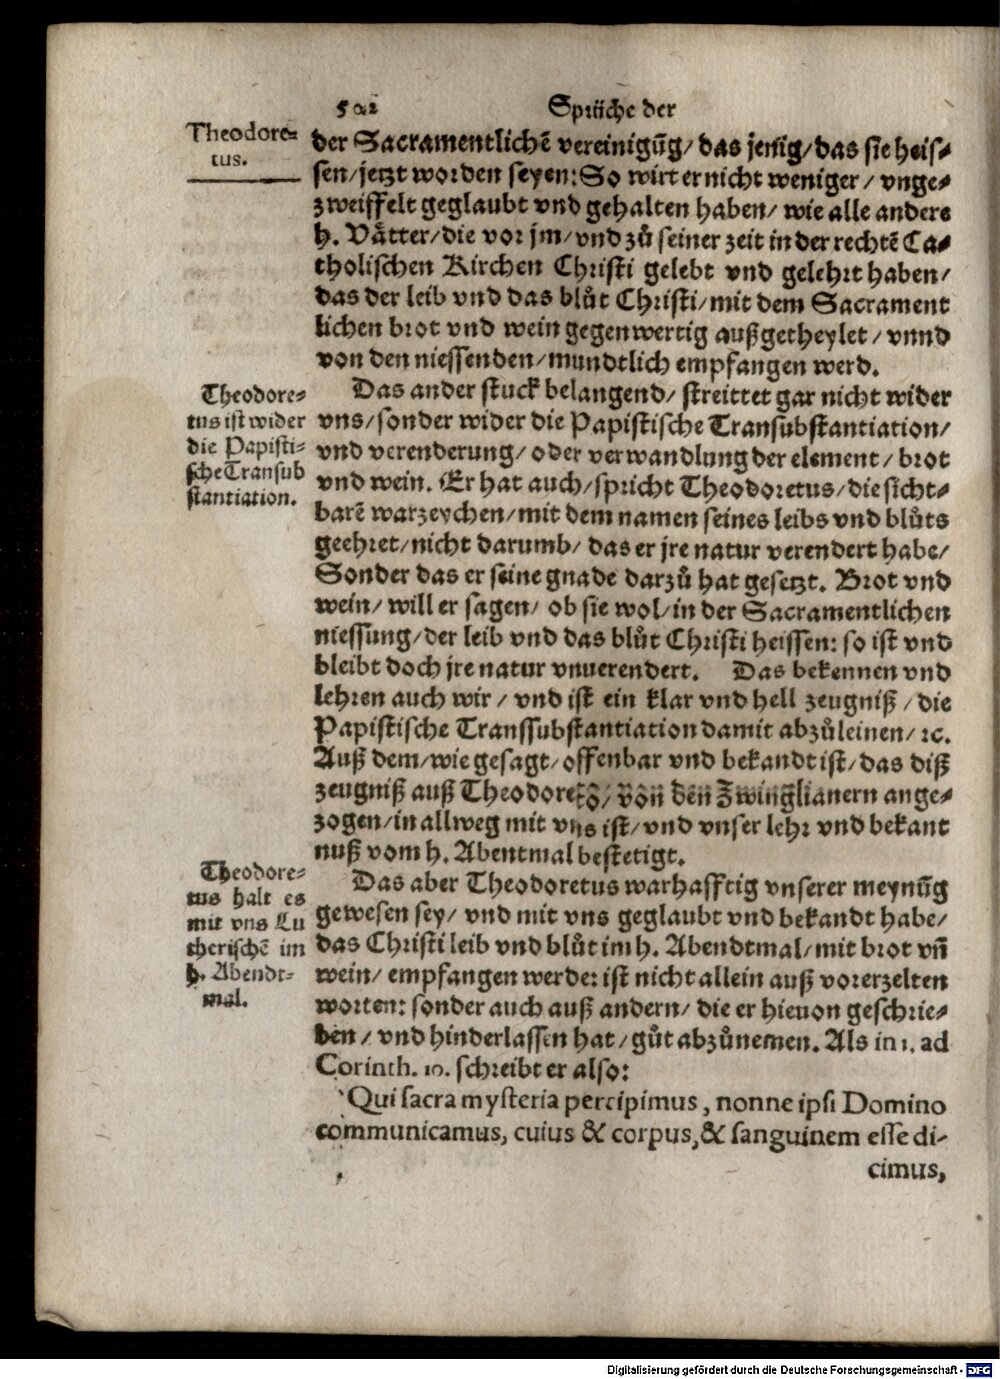 502 Sprüche der
Theodore⸗
tus.
der Sacramentlichẽ vereinigũg/ das jenig/ das sie heis⸗
sen/ jetzt worden seyen: So wirt er nicht weniger/ vnge⸗
zweiffelt geglaubt vnd gehalten haben/ wie alle andere
h. Vaͤtter/ die vor jm/ vnd zuͦ seiner zeit in der rechtẽ Ca⸗
tholischen Kirchen Christi gelebt vnd gelehrt haben/
das der leib vnd das bluͦt Christi/ mit dem Sacrament
lichen brot vnd wein gegenwertig außgetheylet/ vnnd
von den niessenden/ mundtlich empfangen werd.
Theodore⸗
tus ist wider
die Papisti⸗
sche Transub
stantiation.
Das ander stuck belangend/ streittet gar nicht wider
vns/ sonder wider die Papistische Transubstantiation/
vnd verenderung/ oder verwandlung der element/ brot
vnd wein. Er hat auch/ spricht Theodoretus/ die sicht⸗
barẽ warzeychen/ mit dem namen seines leibs vnd bluͦts
geehret/ nicht darumb/ das er jre natur verendert habe/
Sonder das er seine gnade darzuͦ hat gesetzt. Brot vnd
wein/ will er sagen/ ob sie wol/ in der Sacramentlichen
niessung/ der leib vnd das bluͦt Christi heissen: so ist vnd
bleibt doch jre natur vnuerendert. Das bekennen vnd
lehren auch wir/ vnd ist ein klar vnd hell zeugniß/ die
Papistische Transsubstantiation damit abzuͦleinen/ ꝛc.
Auß dem/ wie gesagt/ offenbar vnd bekandt ist/ das diß
zeugniß auß Theodoreto/ von den Zwinglianern ange⸗
zogen/ in allweg mit vns ist/ vnd vnser lehr vnd bekant
nuß vom h. Abentmal bestetigt.
Theodore⸗
tus halt es
mit vns Lu
therischẽ im
h. Abendt⸗
mal.
Das aber Theodoretus warhafftig vnserer meynũg
gewesen sey/ vnd mit vns geglaubt vnd bekandt habe/
das Christi leib vnd bluͦt im h. Abendtmal/ mit brot vñ
wein/ empfangen werde: ist nicht allein auß vorerzelten
worten: sonder auch auß andern/ die er hieuon geschrie⸗
ben/ vnd hinderlassen hat/ guͦt abzuͦnemen. Als in 1. ad
Corinth. 10. schreibt er also:
Qui sacra mysteria percipimus, nonne ipsi Domino
communicamus, cuius & corpus, & sanguinem esse di-
cimus,
Digitalisierung gefördert durch die Deutsche Forschungsgemeinschaft - DFG